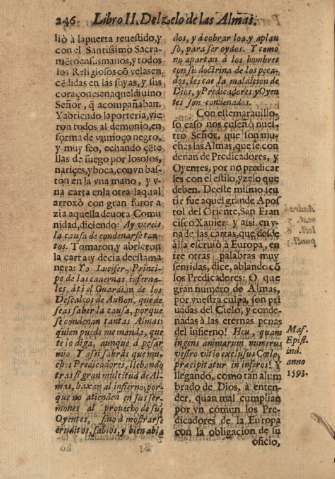 246 Libro II. Del zelo de las Almas,
liò à la puerta reuestido, y
con el Santissimo Sacra-
mẽto en sus manos, y todos
los Religiosos cõ velas en-
cẽdidas en las suyas, y sus
coraçones en aquel diuino
Señor, q̃ acompañaban.
Y abriendo la porteria, vie-
ron todos al demonio, en
forma de vn mõgo negro,
y muy feo, echando cẽte-
llas de fuego por los ojos,
narizes, y boca, con vn bas-
ton en la vna mano, y v-
na carta en la otra la qual
arroxó con gran furor a-
zia aquella deuota Comu-
nidad, diciendo: Ay vereis
la causa de condenarse tan-
tos. Tomaron, y abrieron
la carta y decia desta ma-
nera: Yo Lucifer, Princi-
pe de las cauernas inferna-
les, à ti el Guardian de los
Descalços de Auñon, que de-
seas saber la causa, porque
se condenan tantas Almas:
quien puede me manda, que
te lo diga, aunque à pesar
mio. Y assi sabràs que mu-
chos Predicadores, llebando
tras si gran multitud de Al-
mas, baxan al infierno, por-
que no atienden en sus ser-
mones al prouecho de sus
Oyentes, sino à mostrarse
eruditos, sabios, y bien habla-
dos, y à cobrar los, y aplau-
so, para ser oydos. Y como
no apartan à los hombres
con su doctrina de los peca-
dos, les cae la maldicion de
Dios, y Predicadores y Oyen-
tes son condenados.
Con este marauillo-
so caso nos enseñó nues-
tro Señor, que son mu-
chas las Almas, que se con-
denan de Predicadores, y
Oyentes, por no predicar-
les con el estilo, y zelo que
deben. De este mismo sen-
tir fue aquel grande Apos-
tol del Oriente, San Fran-
cisco Xauier. Y assi, en v-
na de las cartas, que desde
allà escriuió à Europa, en-
tre otras palabras muy
sentidas, dice, ablando cõ
los Predicadores: O que
gran numero de Almas,
por vuestra culpa, son pri-
uadas del Cielo, y conde-
nadas à las eternas penas
del infierno! Heu, quàm
ingens animarum numerus
vestro vitio exclusus Cœlo,
præcipitatur in inferos! Y
llegando, como tan alum-
brado de Dios, à enten-
der, quan mal cumplian
por vn comun los Pre-
dicadores de la Europa
con la obligacion de su
oficio,
Maf.
Epist.
ind.
anno
1593.